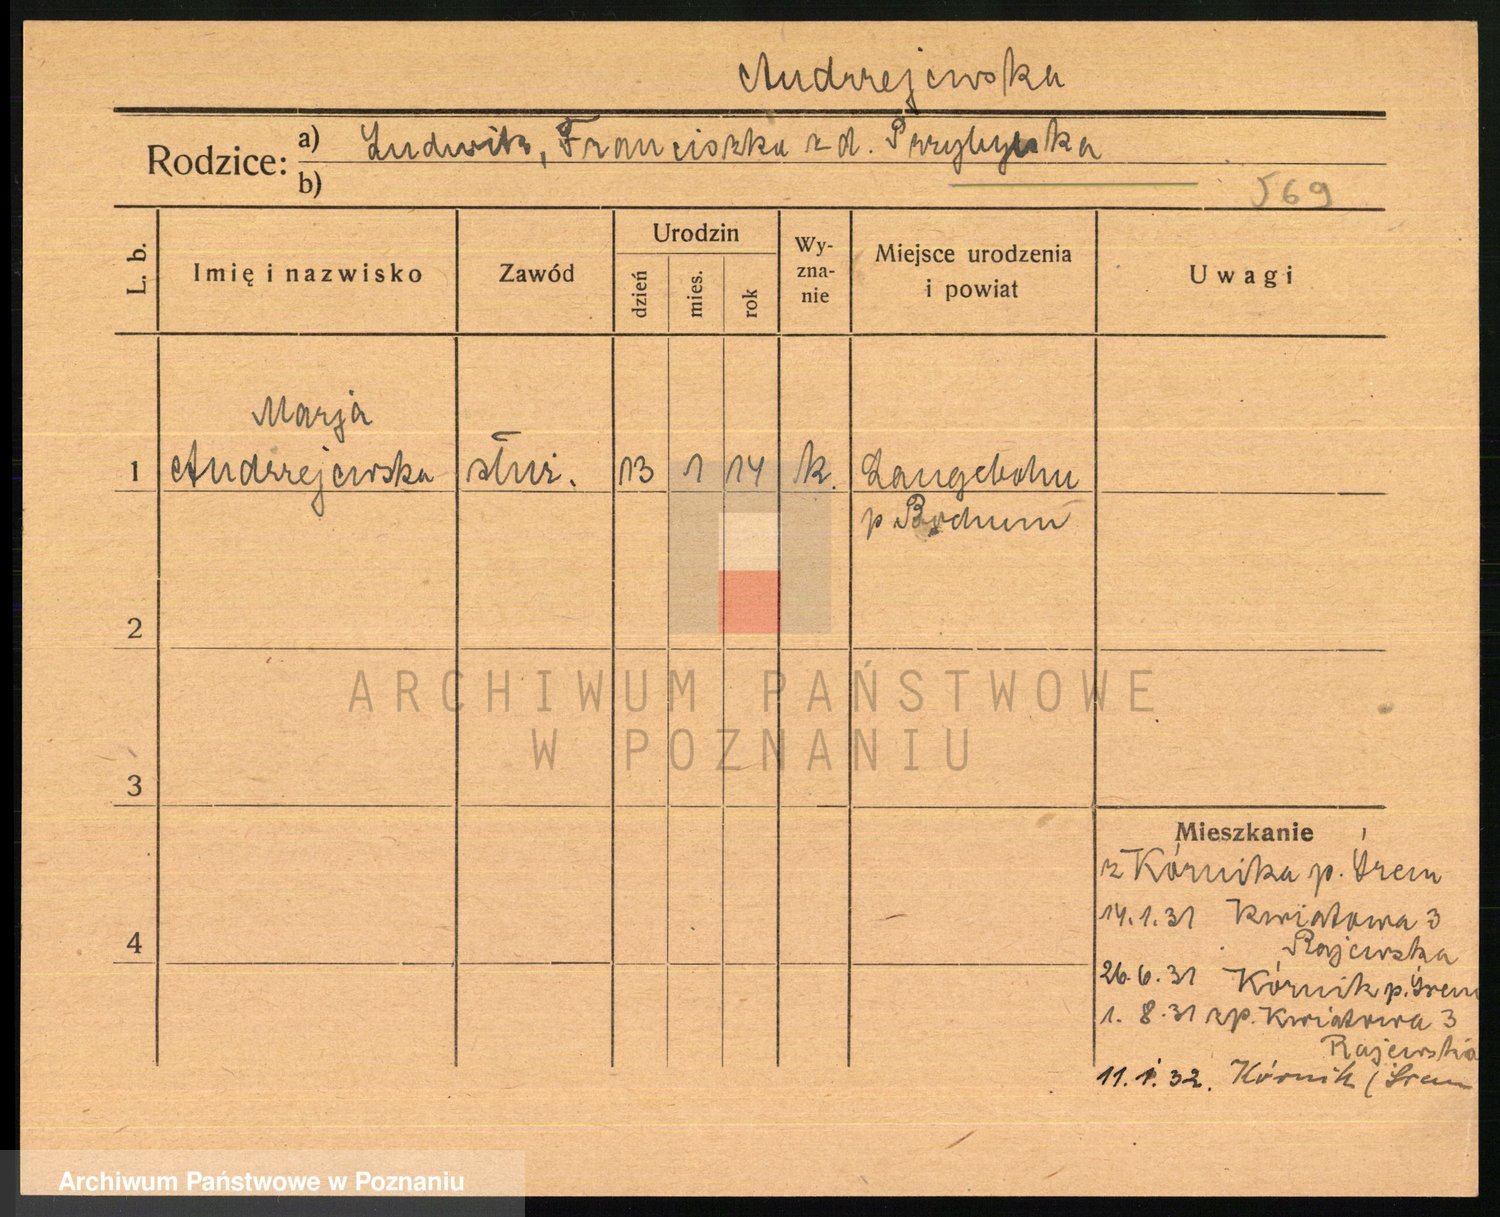 Andrzejewska
Rodzice: a) Ludwik, Franciszka z d. Przybylska
b)
569
L. b.
Imię i nazwisko
Zawód
Urodzin
dzień
mies.
rok
Wy-
zna-
nie
Miejsce urodzenia
i powiat
Uwagi
Marja
1 Andrzejewska służ. 13 1 14 k. Langebohn
p Bochum
2
ARCHIWUM PAŃSTWOWE
W POZNANIU
3
Mieszkanie
z Kórnika p. Śrem
14.1.31 Kwiatowa 3
Rajewska
4
26.6.31 Kórnik p. Śrem
1. 8.31 zp. Kwiatowa 3
Rajewska
11.1.32. Kórnik (Śrem
Archiwum Państwowe w Poznaniu